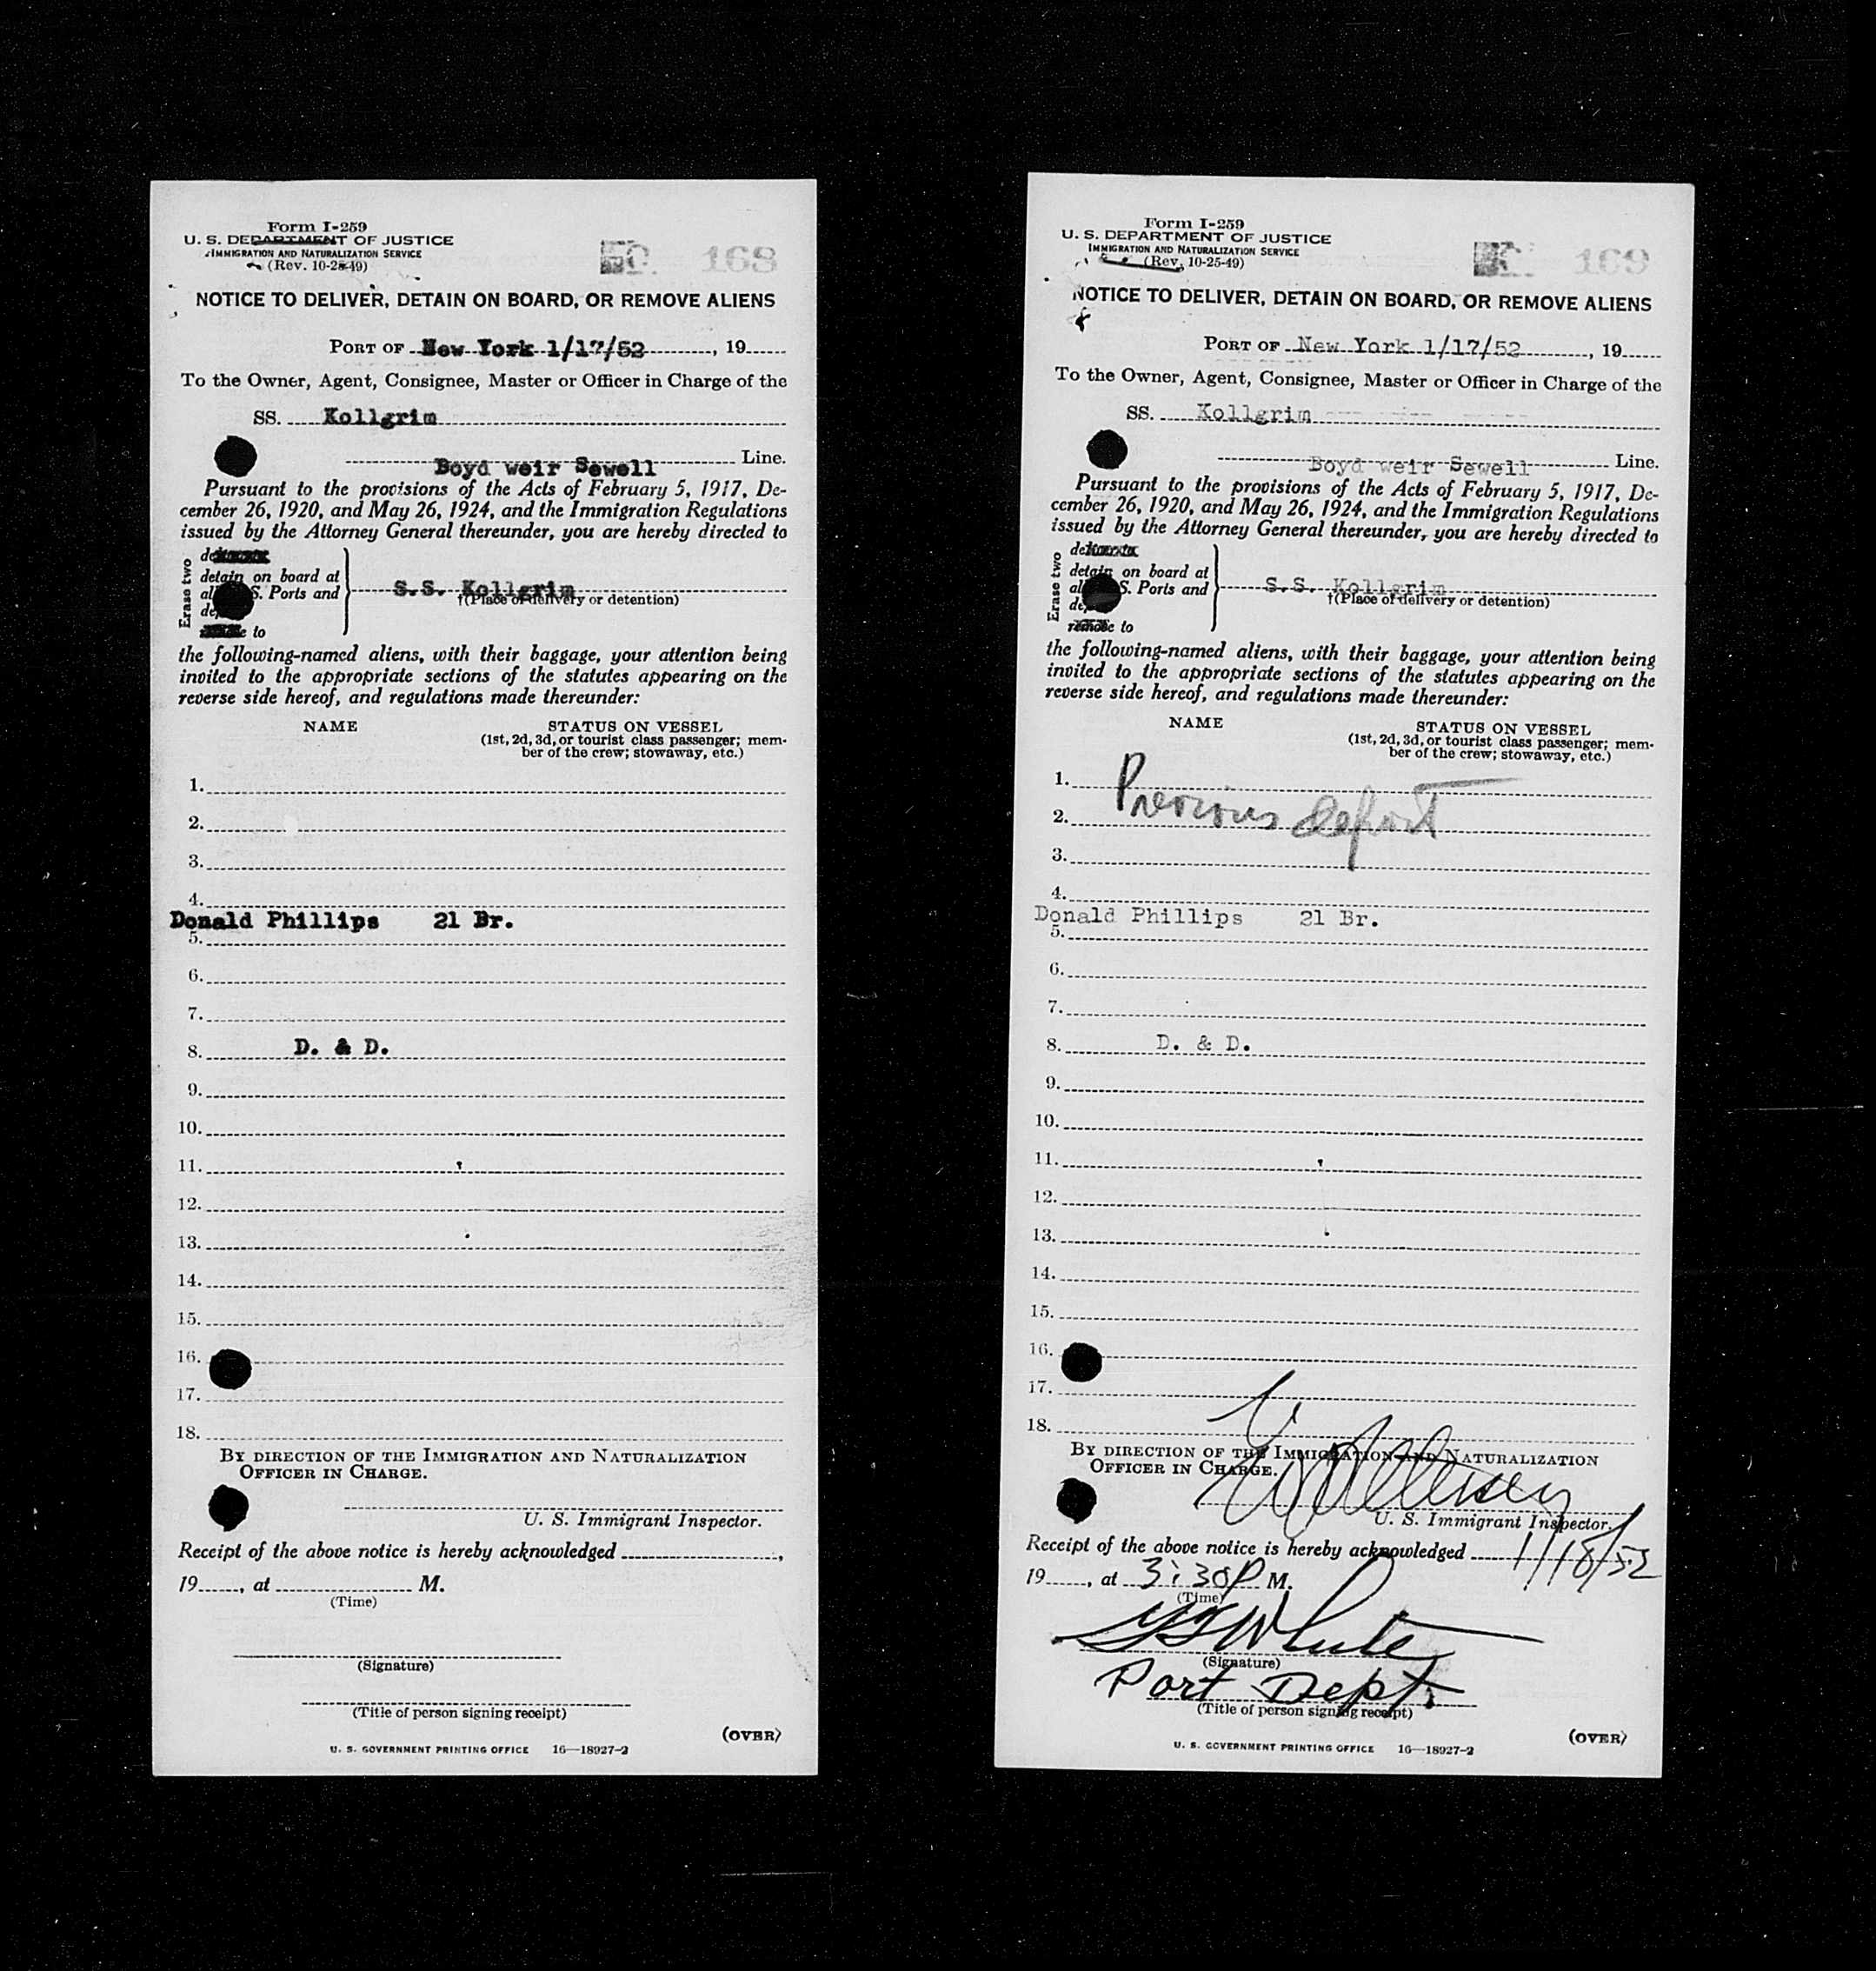 Form I-259
U. S. DEPARTMENT OF JUSTICE
IMMIGRATION AND NATURALIZATION SERVICE
(Rev. 10-25-49)
168
NOTICE TO DELIVER, DETAIN ON BOARD, OR REMOVE ALIENS
PORT OF New York 1/17/52, 19
To the Owner, Agent, Consignee, Master or Officer in Charge of the
SS. Kollgrim
Boyd weir Sewell Line.
Pursuant to the provisions of the Acts of February 5, 1917, De-
cember 26, 1920, and May 26, 1924, and the Immigration Regulations
issued by the Attorney General thereunder, you are hereby directed to
Erase two
detain on board at
S. Ports and
to
S.S. Kollgrim
†(Place of delivery or detention)
the following-named aliens, with their baggage, your attention being
invited to the appropriate sections of the statutes appearing on the
reverse side hereof, and regulations made thereunder:
NAME STATUS ON VESSEL
(1st, 2d, 3d, or tourist class passenger; mem-
ber of the crew; stowaway, etc.)
1.
2.
3.
4.
Donald Phillips 21 Br.
5.
6.
7.
8. D. & D.
9.
10.
11.
12.
13.
14.
15.
16.
17.
18.
BY DIRECTION OF THE IMMIGRATION AND NATURALIZATION
OFFICER IN CHARGE.
U. S. Immigrant Inspector.
Receipt of the above notice is hereby acknowledged ,
19 , at M.
(Time)
(Signature)
(Title of person signing receipt)
(OVER)
U. S. GOVERNMENT PRINTING OFFICE 16—18927-2
Form I-259
U. S. DEPARTMENT OF JUSTICE
IMMIGRATION AND NATURALIZATION SERVICE
(Rev. 10-25-49)
169
NOTICE TO DELIVER, DETAIN ON BOARD, OR REMOVE ALIENS
PORT OF New York 1/17/52, 19
To the Owner, Agent, Consignee, Master or Officer in Charge of the
SS. Kollgrim
Boyd weir Sewell Line.
Pursuant to the provisions of the Acts of February 5, 1917, De-
cember 26, 1920, and May 26, 1924, and the Immigration Regulations
issued by the Attorney General thereunder, you are hereby directed to
Erase two
detain on board at
S. Ports and
remove to
S.S. Kollgrim
†(Place of delivery or detention)
the following-named aliens, with their baggage, your attention being
invited to the appropriate sections of the statutes appearing on the
reverse side hereof, and regulations made thereunder:
NAME STATUS ON VESSEL
(1st, 2d, 3d, or tourist class passenger; mem-
ber of the crew; stowaway, etc.)
1.
Previous deport
2.
3.
4.
Donald Phillips 21 Br.
5.
6.
7.
8. D. & D.
9.
10.
11.
12.
13.
14.
15.
16.
17.
18.
BY DIRECTION OF THE IMMIGRATION AND NATURALIZATION
OFFICER IN CHARGE.
U. S. Immigrant Inspector.
Receipt of the above notice is hereby acknowledged 1/18/52
19 , at 3:30P M.
(Time)
White
(Signature)
Port Dept.
(Title of person signing receipt)
(OVER)
U. S. GOVERNMENT PRINTING OFFICE 16—18927-2